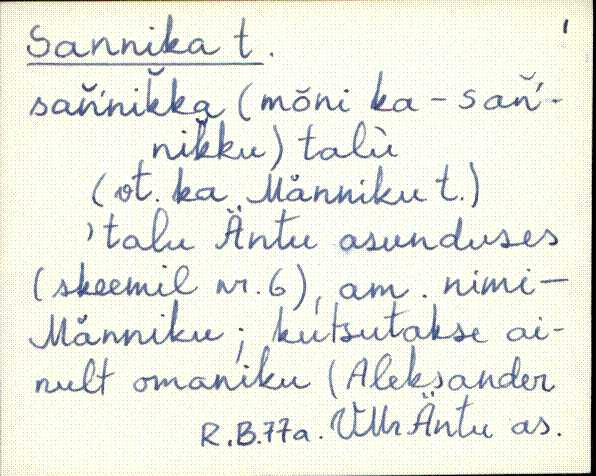 Sannika t. 1
sań̆nik̆ka (mõni ka - sań̆-
nik̆ku) talù
(vt. ka Männiku t.)
'talu Äntu asunduses
(skeemil nr. 6), am. nimi-
Männiku; kutsutakse ai-
nult omaniku (Aleksander
R.B.77a. VMr Äntu as.